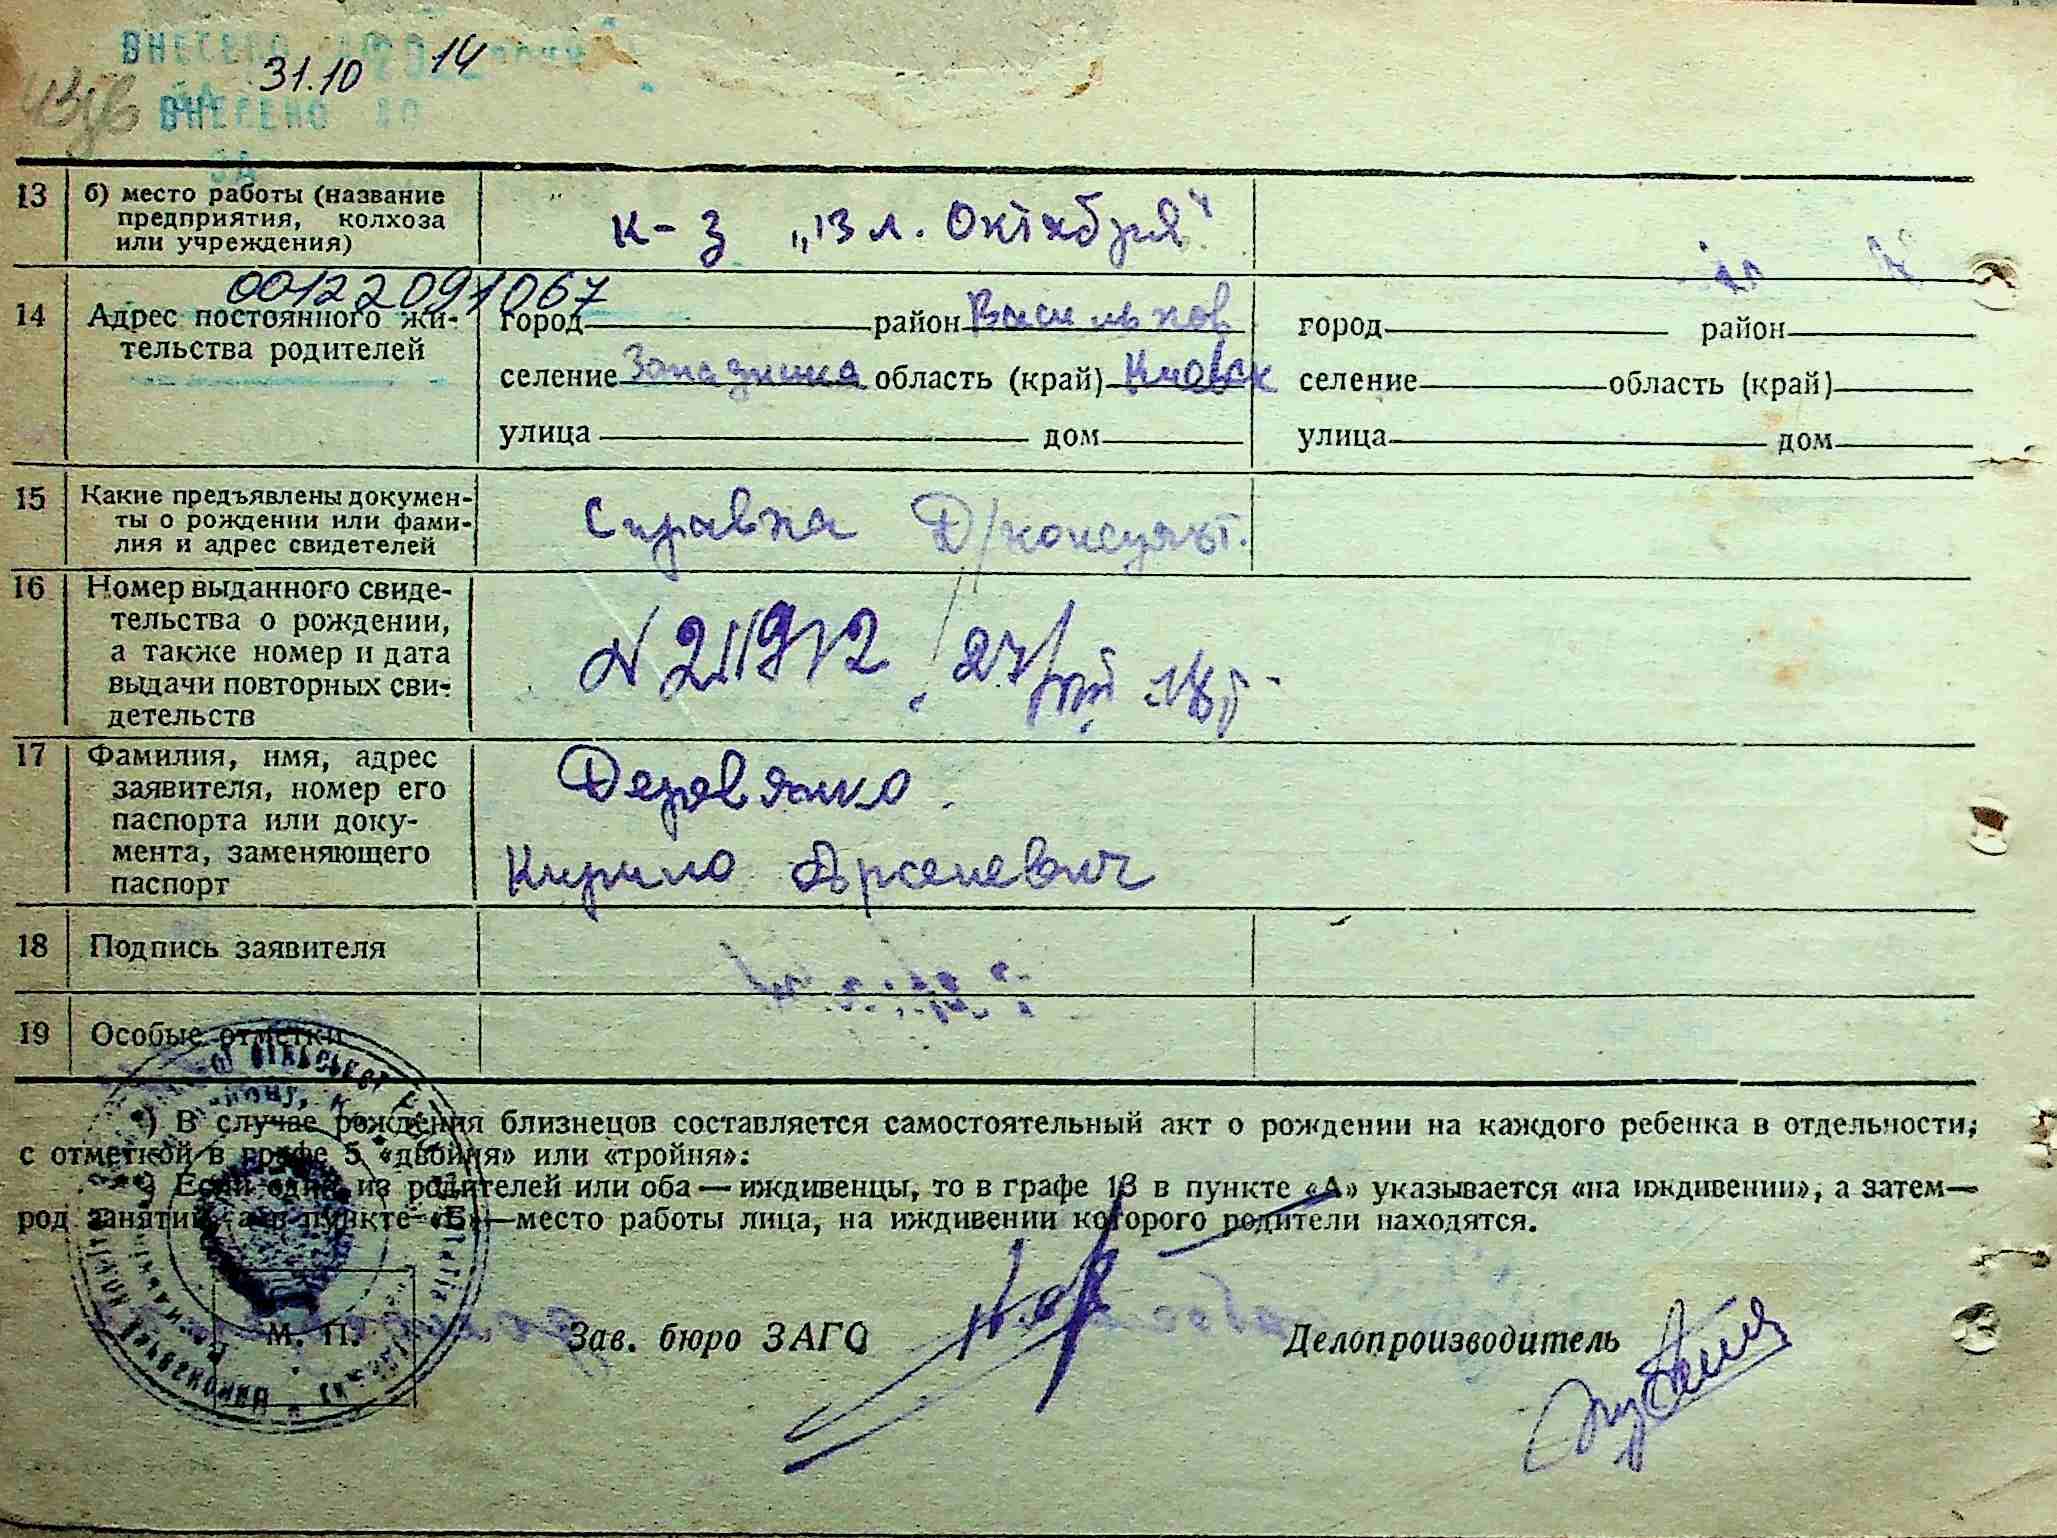 ВНЕСЕНО
31.10 14
ВНЕСЕНО ДО
ЗА
13 б) место работы (название предприятия, колхоза или учреждения) к-з „13 л. Октября“
00122091067
14 Адрес постоянного жи-
тельства родителей
город район Васильков город район
селение Западинка область (край) Киевск селение область (край)
улица дом улица дом
15 Какие предъявлены докумен-
ты о рождении или фами-
лия и адрес свидетелей
Справка Д/консульт.
16 Номер выданного свиде-
тельства о рождении,
а также номер и дата
выдачи повторных сви-
детельств
N 211912
17 Фамилия, имя, адрес
заявителя, номер его
паспорта или доку-
мента, заменяющего
паспорт
Деревянко
Кирило Арсеневич
18 Подпись заявителя
19 Особые отметки
) В случае рождения близнецов составляется самостоятельный акт о рождении на каждого ребенка в отдельности;
с отметкой в графе 5 «двойня» или «тройня»:
) Если один из родителей или оба—иждивенцы, то в графе 13 в пункте «А» указывается «на иждивении», а затем—
род занятий, а в пункте «Б»—место работы лица, на иждивении которого родители находятся.
М. П. Зав. бюро ЗАГС Делопроизводитель